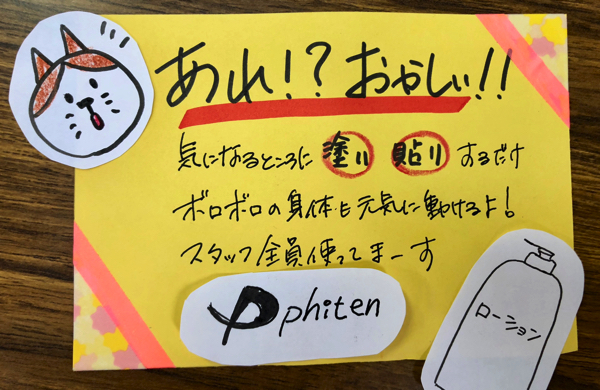 あれ!?おかしい!!
気になるところに 塗り 貼り するだけ
ボロボロの身体も元気に動けるよ!
スタッフ全員使ってまーす
phiten
ローション